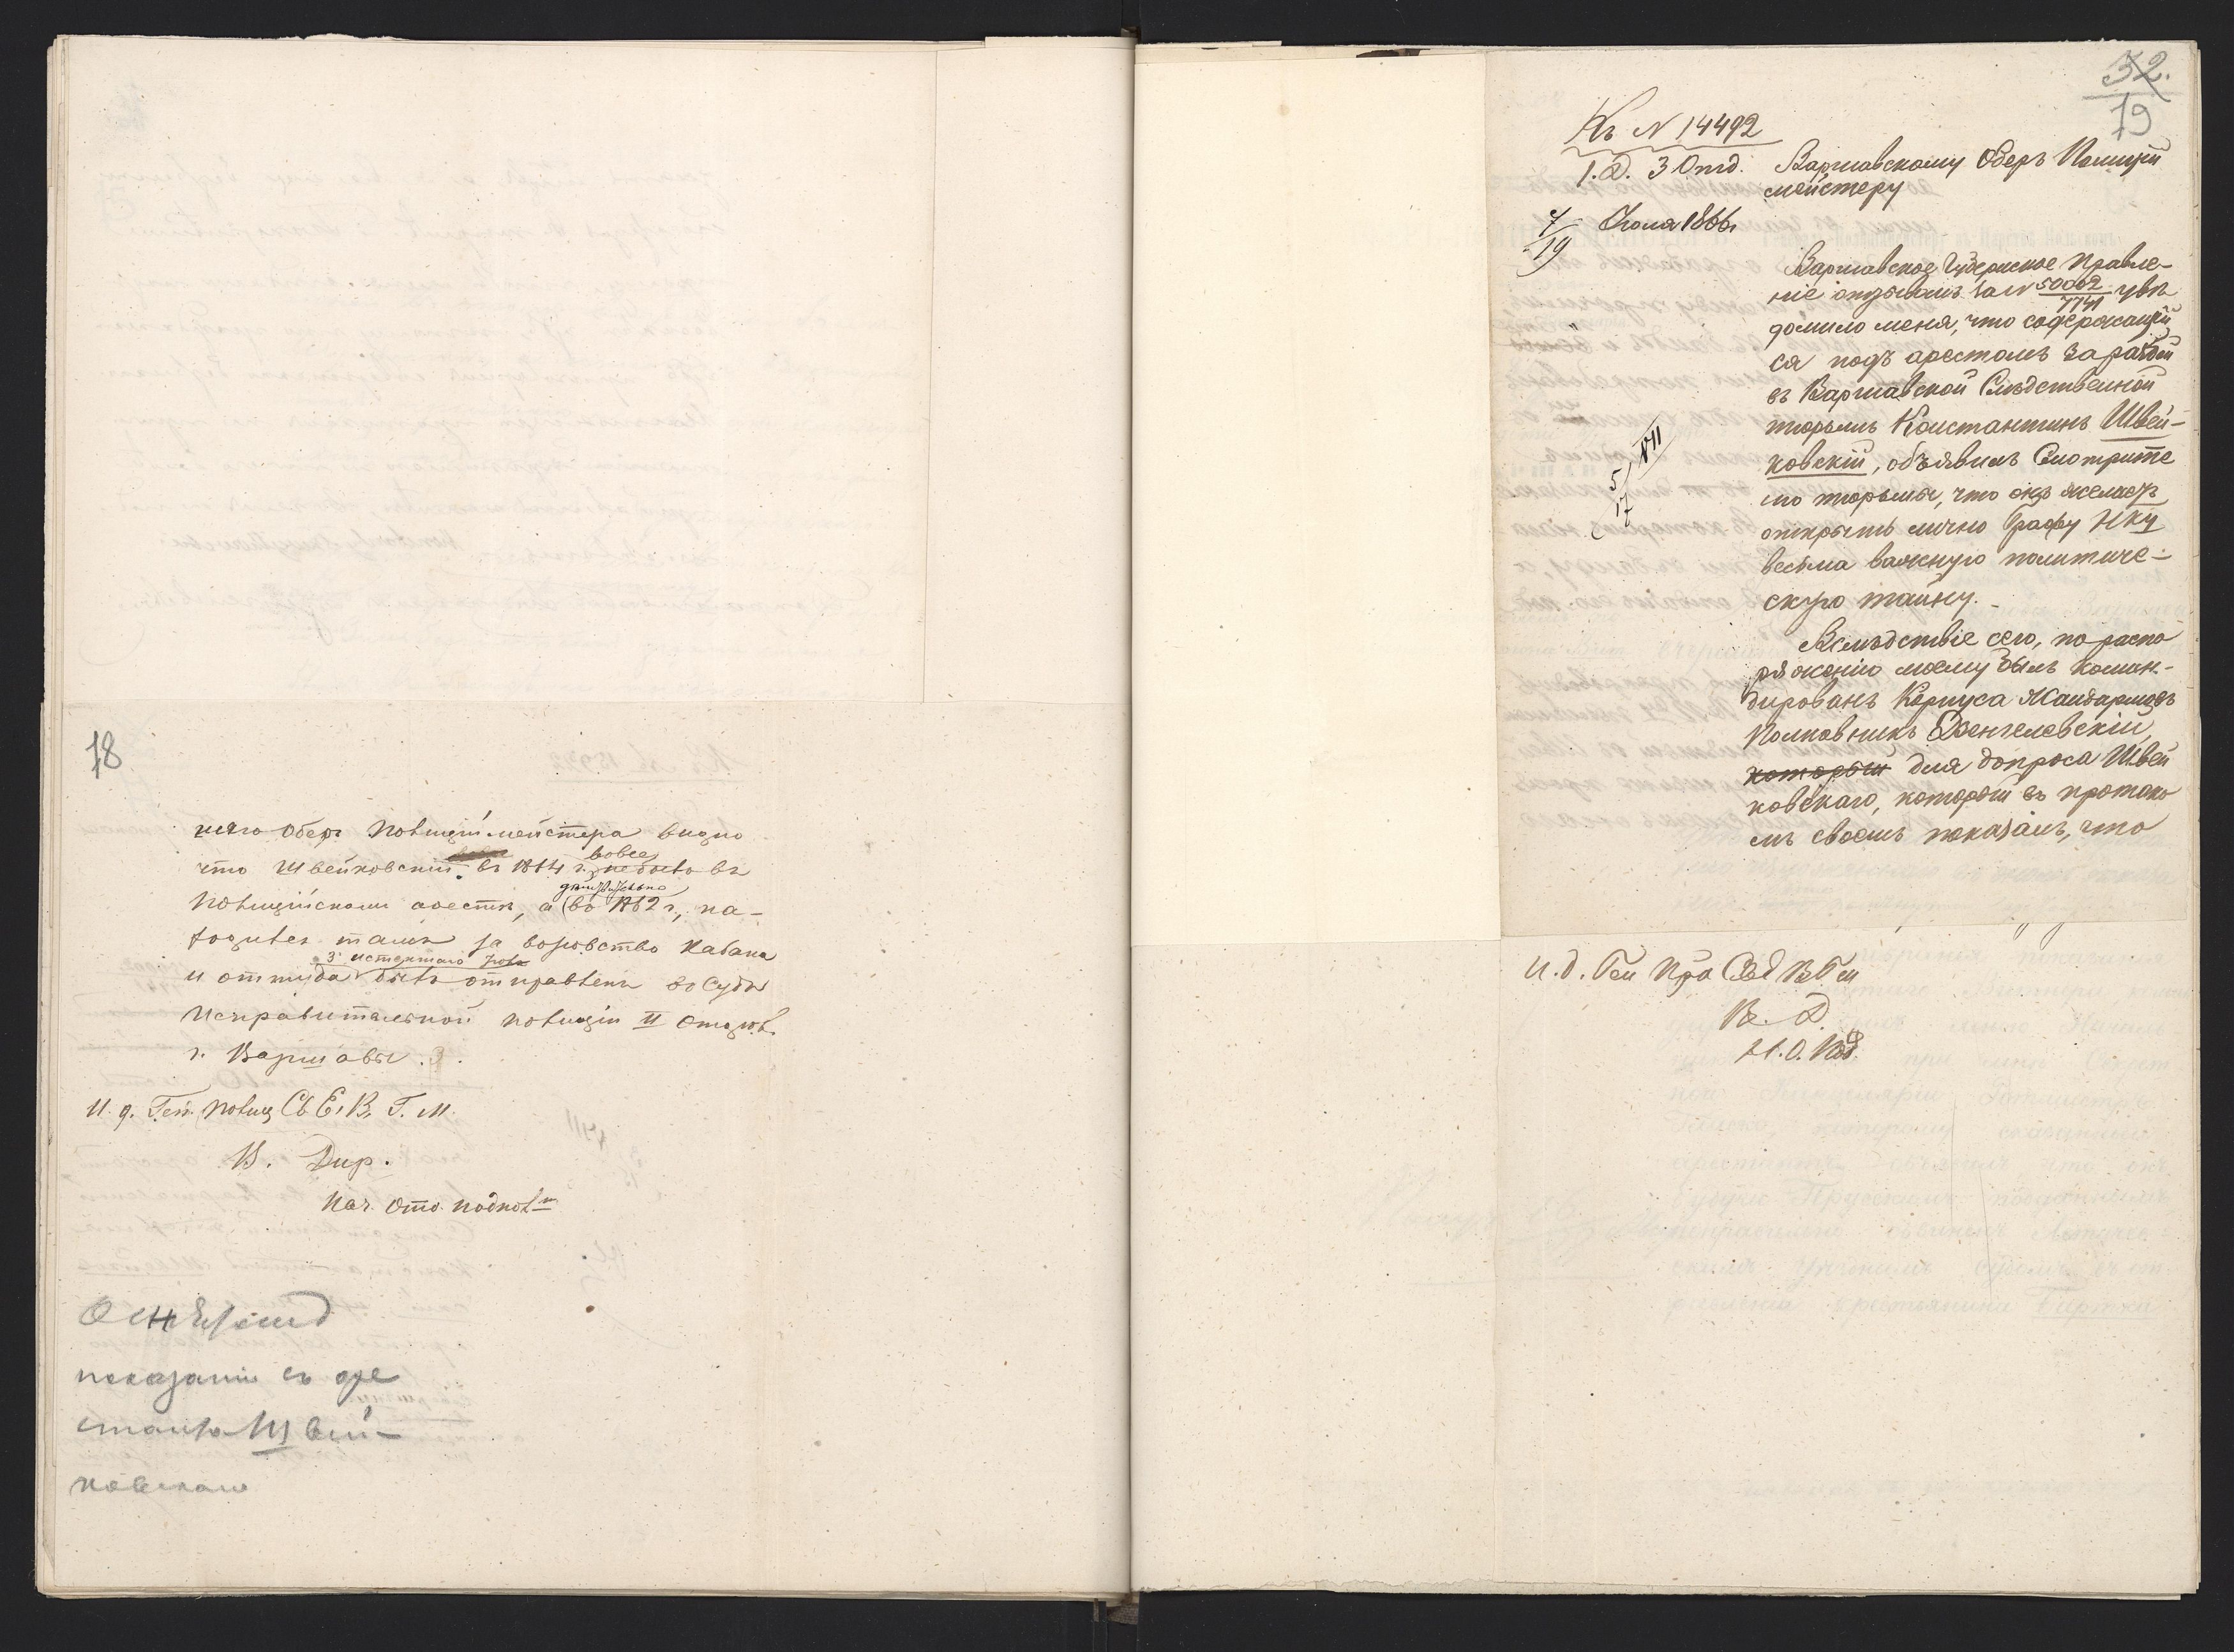 18
скаго Обер Полицiймейстера видно
что Швейковскiй въ 1864 г. вовсе не былъ въ
Полицiйскомъ арестѣ, а действительно въ 1862 г., на-
ходился тамъ за воровство
и оттуда 3 истекшаго былъ отправленъ въ Судъ
Исправительной Полицiи II Отдѣл.
г. Варшавы.
И. д. Ген. Полиц Св Е. В. Г. М.
В. Дир.
Нач. Отд. Подполк
показанiи съ аре
станта Швей-
ковскаго
32.
19
Къ N 14492
1. Д. 3 Отд.
7/19 Iюля 1866 г
5/17 VII
Варшавскому Оберъ Полицiй
мейстеру
Варшавское Губернское Правле-
нiе отзывомъ за N 50002/7741 увѣ
домило меня, что содержащiй
ся подъ арестомъ за разбой
въ Варшавской Слѣдственной
тюрьмѣ Константинъ Швей-
ковскiй, объявилъ Смотрите
лю тюрьмы, что онъ желаетъ
открыть лично Графу Н-ку
весьма важную политиче-
скую тайну.
Вслѣдствiе сего, по распо
ряженiю моему былъ коман-
дированъ Корпуса Жандармовъ
Полковникъ
который для допроса Швей
ковскаго, который въ протоко
лѣ своемъ показалъ, что
И. д. Ген
В. Д.
Н. О. Под.